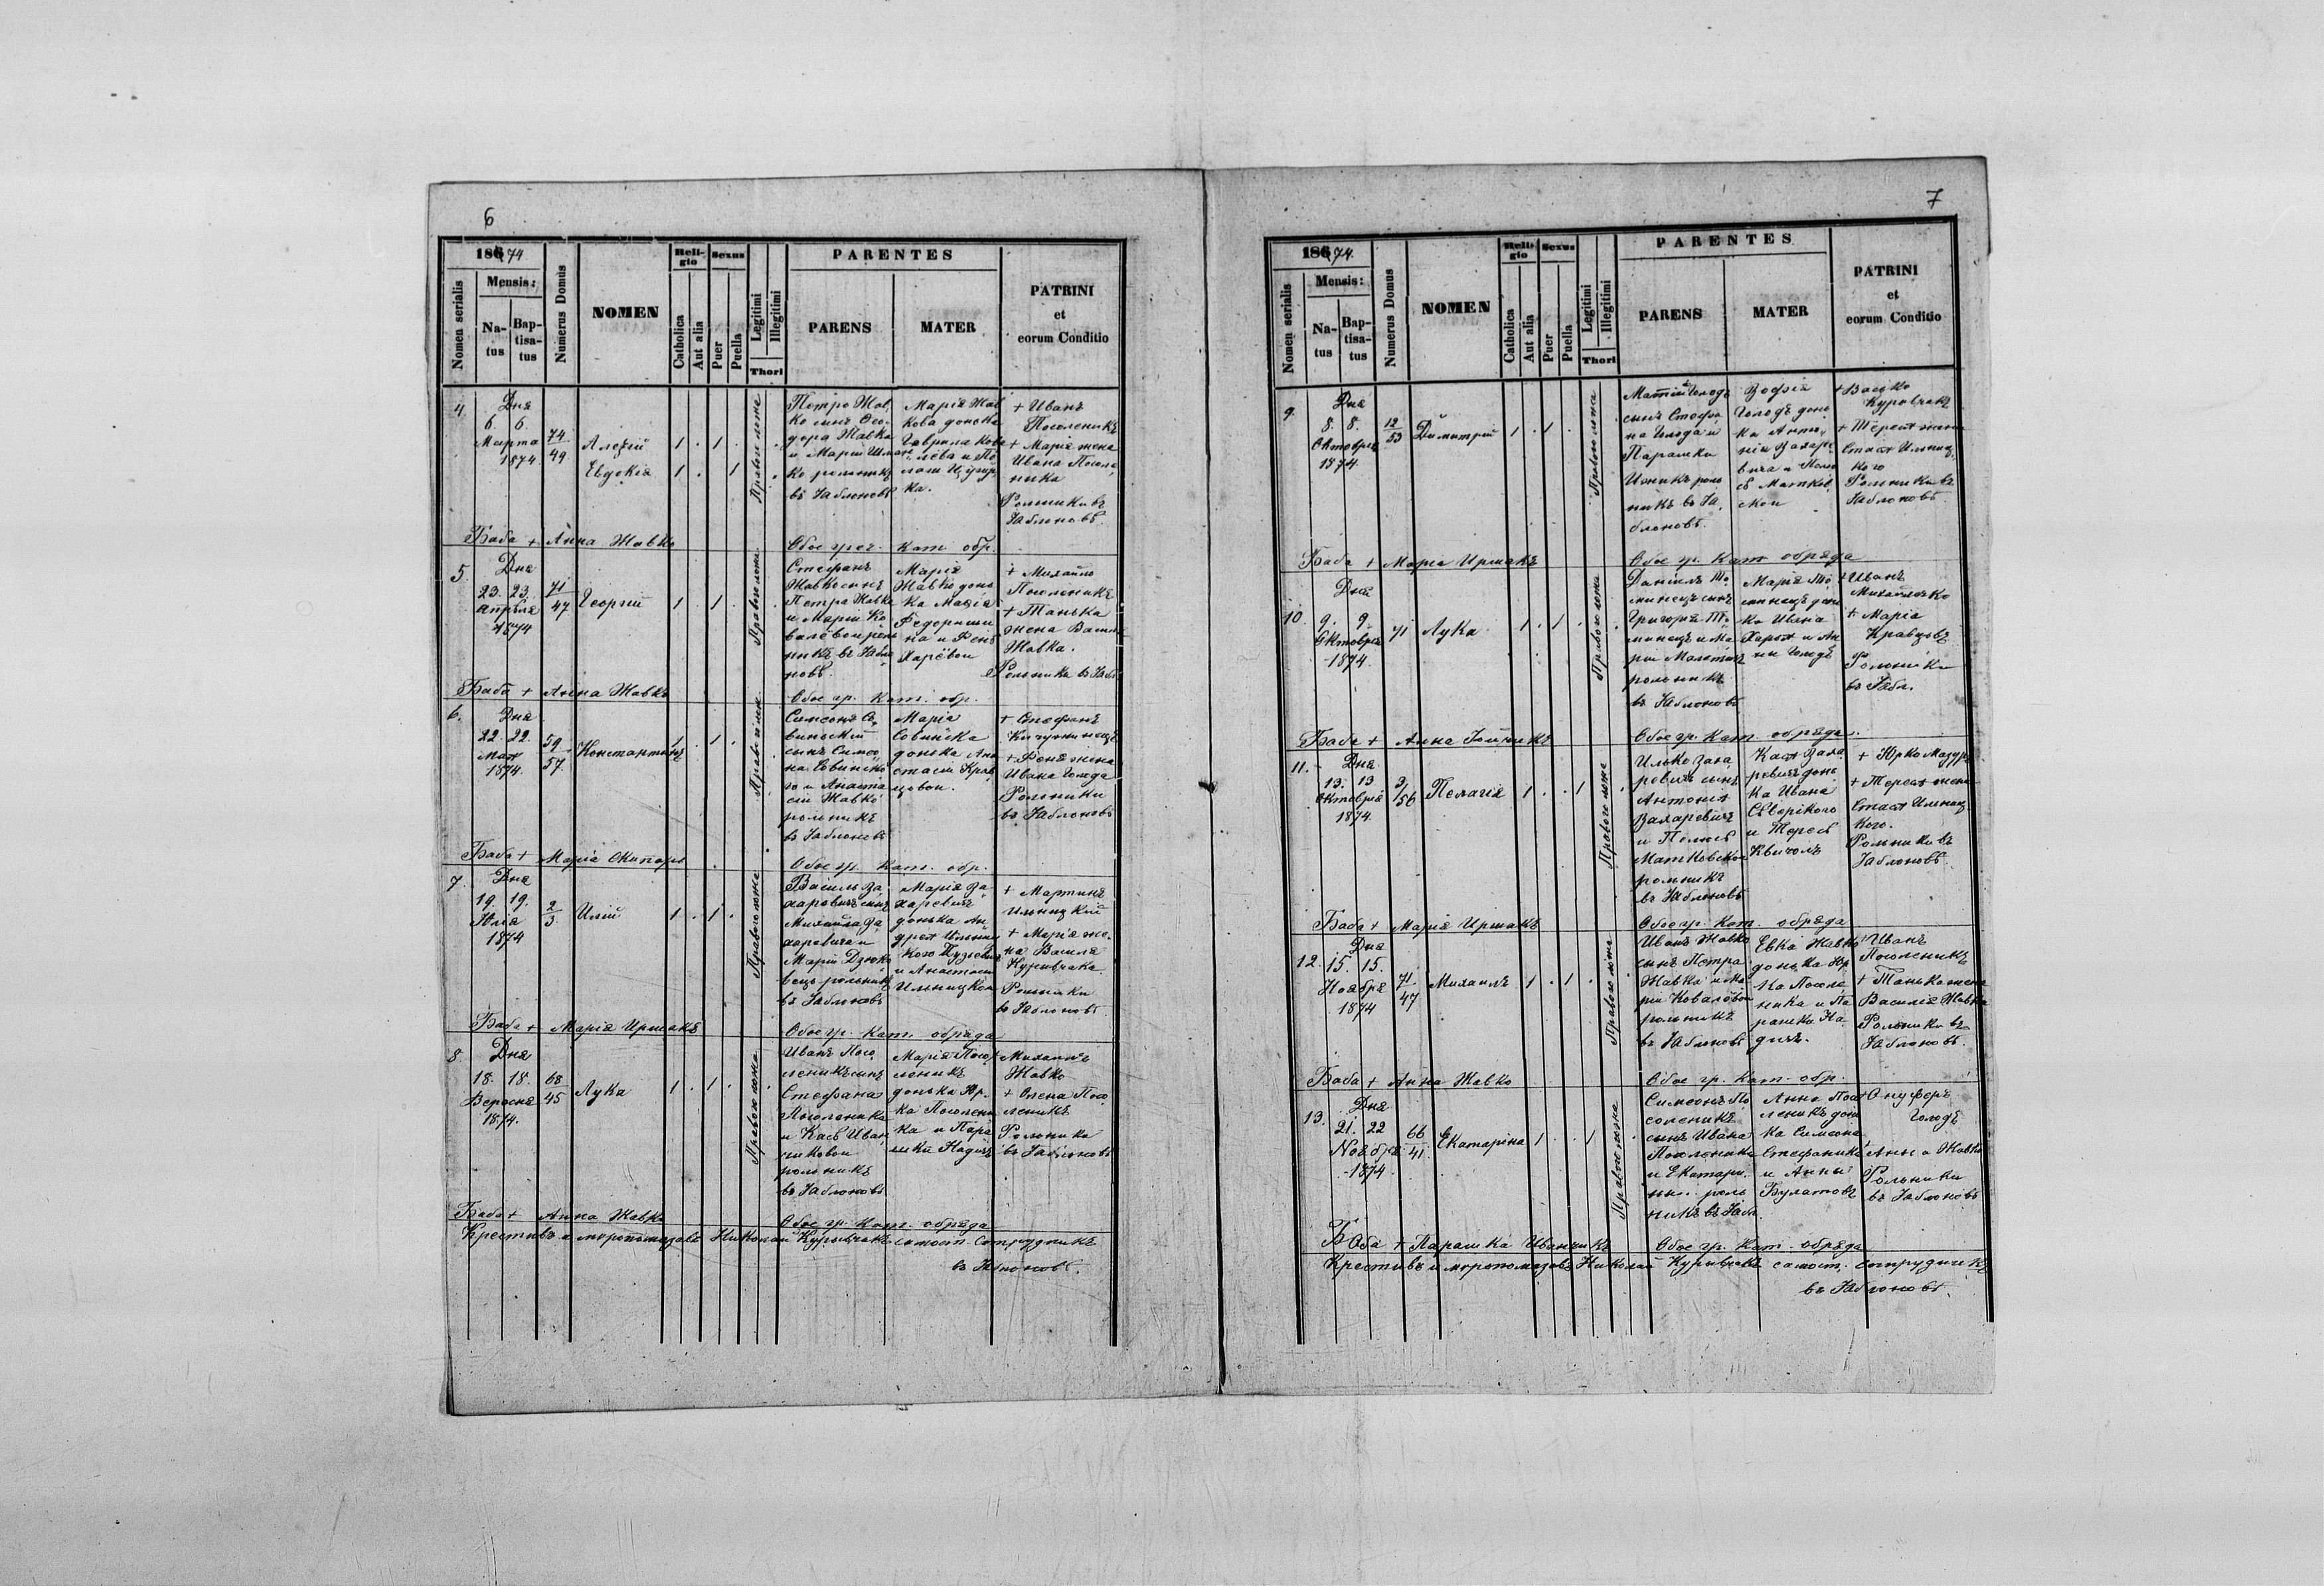 6
1874
Mensis:
Nomen serialis
Natus
Baptisatus
Numerus Domus
NOMEN
Religio
Catholica
Aut alia
Sexus
Puer
Puella
Legitimi
Illegitimi
Thori
PARENTES
PARENS
MATER
PATRINI
et
eorum Conditio
4.
Дня
6. 6.
Марта
1874
74
49
Алеѯій
Евдокія
1 . 1 .
1 . 1
Правого ложа
Петро Жав
ко сынъ Ѳео
дора Жавка
и Маріи
ко рольникъ
въ Яблоновѣ
Марія Жав
кова донька
Гавриила Кова
лёва и
ка.
+ Иванъ
Посоленикъ
+ Марія жена
Ивана Посоле
ника
Рольники въ
Яблоновѣ.
Баба + Анна Жавко
Обое греч. кат. обр.
5.
Дня
23. 23.
Априля
1874
71
47
Георгій
1 . 1 .
Правого ложа
Стефанъ
Жавко сынъ
Петра Жавка
и Маріи Ко
валёвои роль
никъ въ Ябло
новѣ.
Марія
Жавко донь
ка
+ Михайло
Посоленикъ
+ Танька
жена Васил
Жавка.
Рольники въ Ябл
Баба + Анна Жавко
Обое гр. кат. обр.
6.
Дня
22. 22.
Мая
1874.
59
57
Константинъ
1 . 1 .
Правого ложа
Симеонъ Со
виньскій
сынъ Симео
на Совинско
го и Анаста
сіи Жавко
рольникъ
въ Яблоновѣ
Марія
Совиńска
донька Ана
стасіи Крав
цовои.
+ Стефанъ
+ Феня жена
Ивана Голода
Рольники
въ Яблоновѣ
Баба + Марія
Обое гр. кат. обр.
7.
Дня
19. 19.
Юлія
1874
2
3
Илій
1 . 1 .
Правого ложа
Василь За
харевичъ сынъ
Михайла За
харевича и
Маріи Дзюко
вецъ рольникъ
въ Яблоновѣ
Марія За
харевичъ
донька Ан
дрея Ильниц
кого
и Анастасіи
Ильницкои
+ Мартинъ
Ильницкій
+ Марія же
на Василя
Куривчака
Рольники
въ Яблоновѣ.
Баба + Марія Иршакъ
Обое гр. кат. обряда
8.
Дня
18. 18.
Верасня
1874.
68
45
Лука
1 . 1 .
Правого ложа
Иванъ Посо
леникъ сынъ
Стефана
Посоленика
и Касѣ Иван
чиковои
рольникъ
въ Яблоновѣ
Марія Посо
леникъ
донька Юр
ка Посолени
ка и Пара
шки Кадичъ
+ Михаилъ
Жавко
+ Олена Посо
леникъ
Рольники
въ Яблоновѣ
Баба + Анна Жавко
Обое гр. кат. обряда
Крестивъ и миропомазавъ Николай Куривчакъ самост. сотрудникъ
въ Яблоновѣ.
7
1874.
Mensis:
Nomen serialis
Natus
Baptisatus
Numerus Domus
NOMEN
Religio
Catholica
Aut alia
Sexus
Puer
Puella
Legitimi
Illegitimi
Thori
PARENTES
PARENS
MATER
PATRINI
et
eorum Conditio
9.
Дня
8. 8.
Октоврія
1874.
12
53
Димитрій
1 . 1 .
Правого ложа
Матій Голодъ
сынъ Стефа
на Голода и
Парашки
роль
никъ въ Я
блоновѣ.
Зофія
Голодъ донь
ка Анто
нія Захаре
вича и Пела
сѣ Матков
скои
+ Васько
Куривчакъ
+ Терезя жена
Стася Ильниц
кого
Рольники въ
Яблоновѣ.
Баба + Марія Иршакъ
Обое гр. кат обряда
10.
Дня
9. 9.
Октоврія
1874.
71
Лука
1 . 1 .
Правого ложа
Даніилъ То
минецъ сынъ
Григорія То
минецъ и Ма
ріи
рольникъ
въ Яблоновѣ
Марія То
минецъ донь
ка Ивана
и Ан
ны Голодъ
+ Иванъ
Михайлечко
+ Марія
Кравцовъ
Рольники
въ Ябл.
Баба + Анна
Обое гр. кат. обряда.
11.
Дня
13. 13
Октоврія
1874.
3
56
Пелагія
1 . . 1
Правого ложа
Илько Заха
ревичъ сынъ
Антонія
Захаревичъ
и Пелясѣ
Матковскои
рольникъ
въ Яблоновѣ
Кася Заха
ревичъ донь
ка Ивана
Сѣверского
и Терезѣ
+ Юрко Мазуръ
+ Терезя жена
Стася Ильниц
кого.
Рольники въ
Яблоновѣ.
Баба + Марія Иршакъ
Обое гр. кат. обряда
12.
Дня
15. 15.
Ноября
1874
71
47
Михаилъ
1 . 1 .
Правого ложа
Иванъ Жавко
сынъ Петра
Жавка и Ма
ріи Ковалёвои
рольникъ
въ Яблоновѣ
Евка Жавко
донька Юр
ка Посоле
ника и Па
рашки Ка
дичъ.
+ Иванъ
Посоленикъ
+ Танька жена
Василія Жавка
Рольники въ
Яблоновѣ.
Баба + Анна Жавко
Обое гр. кат. обр.
13.
Дня
21. 22
Ноября
1874.
66
41
Екатарина
1 . . 1
Правого ложа
Симеонъ По
соленикъ
сынъ Ивана
Посоленика
и Екатари
ны роль
никъ въ Ябл.
Анна Посо
леникъ донь
ка Симеона
Стефаника
и Анны
Булатовъ
+ Онуферъ
Голодъ
Анна Жавко
Рольники
въ Яблоновѣ
Баба + Парашка Иванчикъ
Обое гр. кат. обряда
Крестивъ и миропомазавъ Николай Куривчакъ самост. сотрудникъ
въ Яблоновѣ.